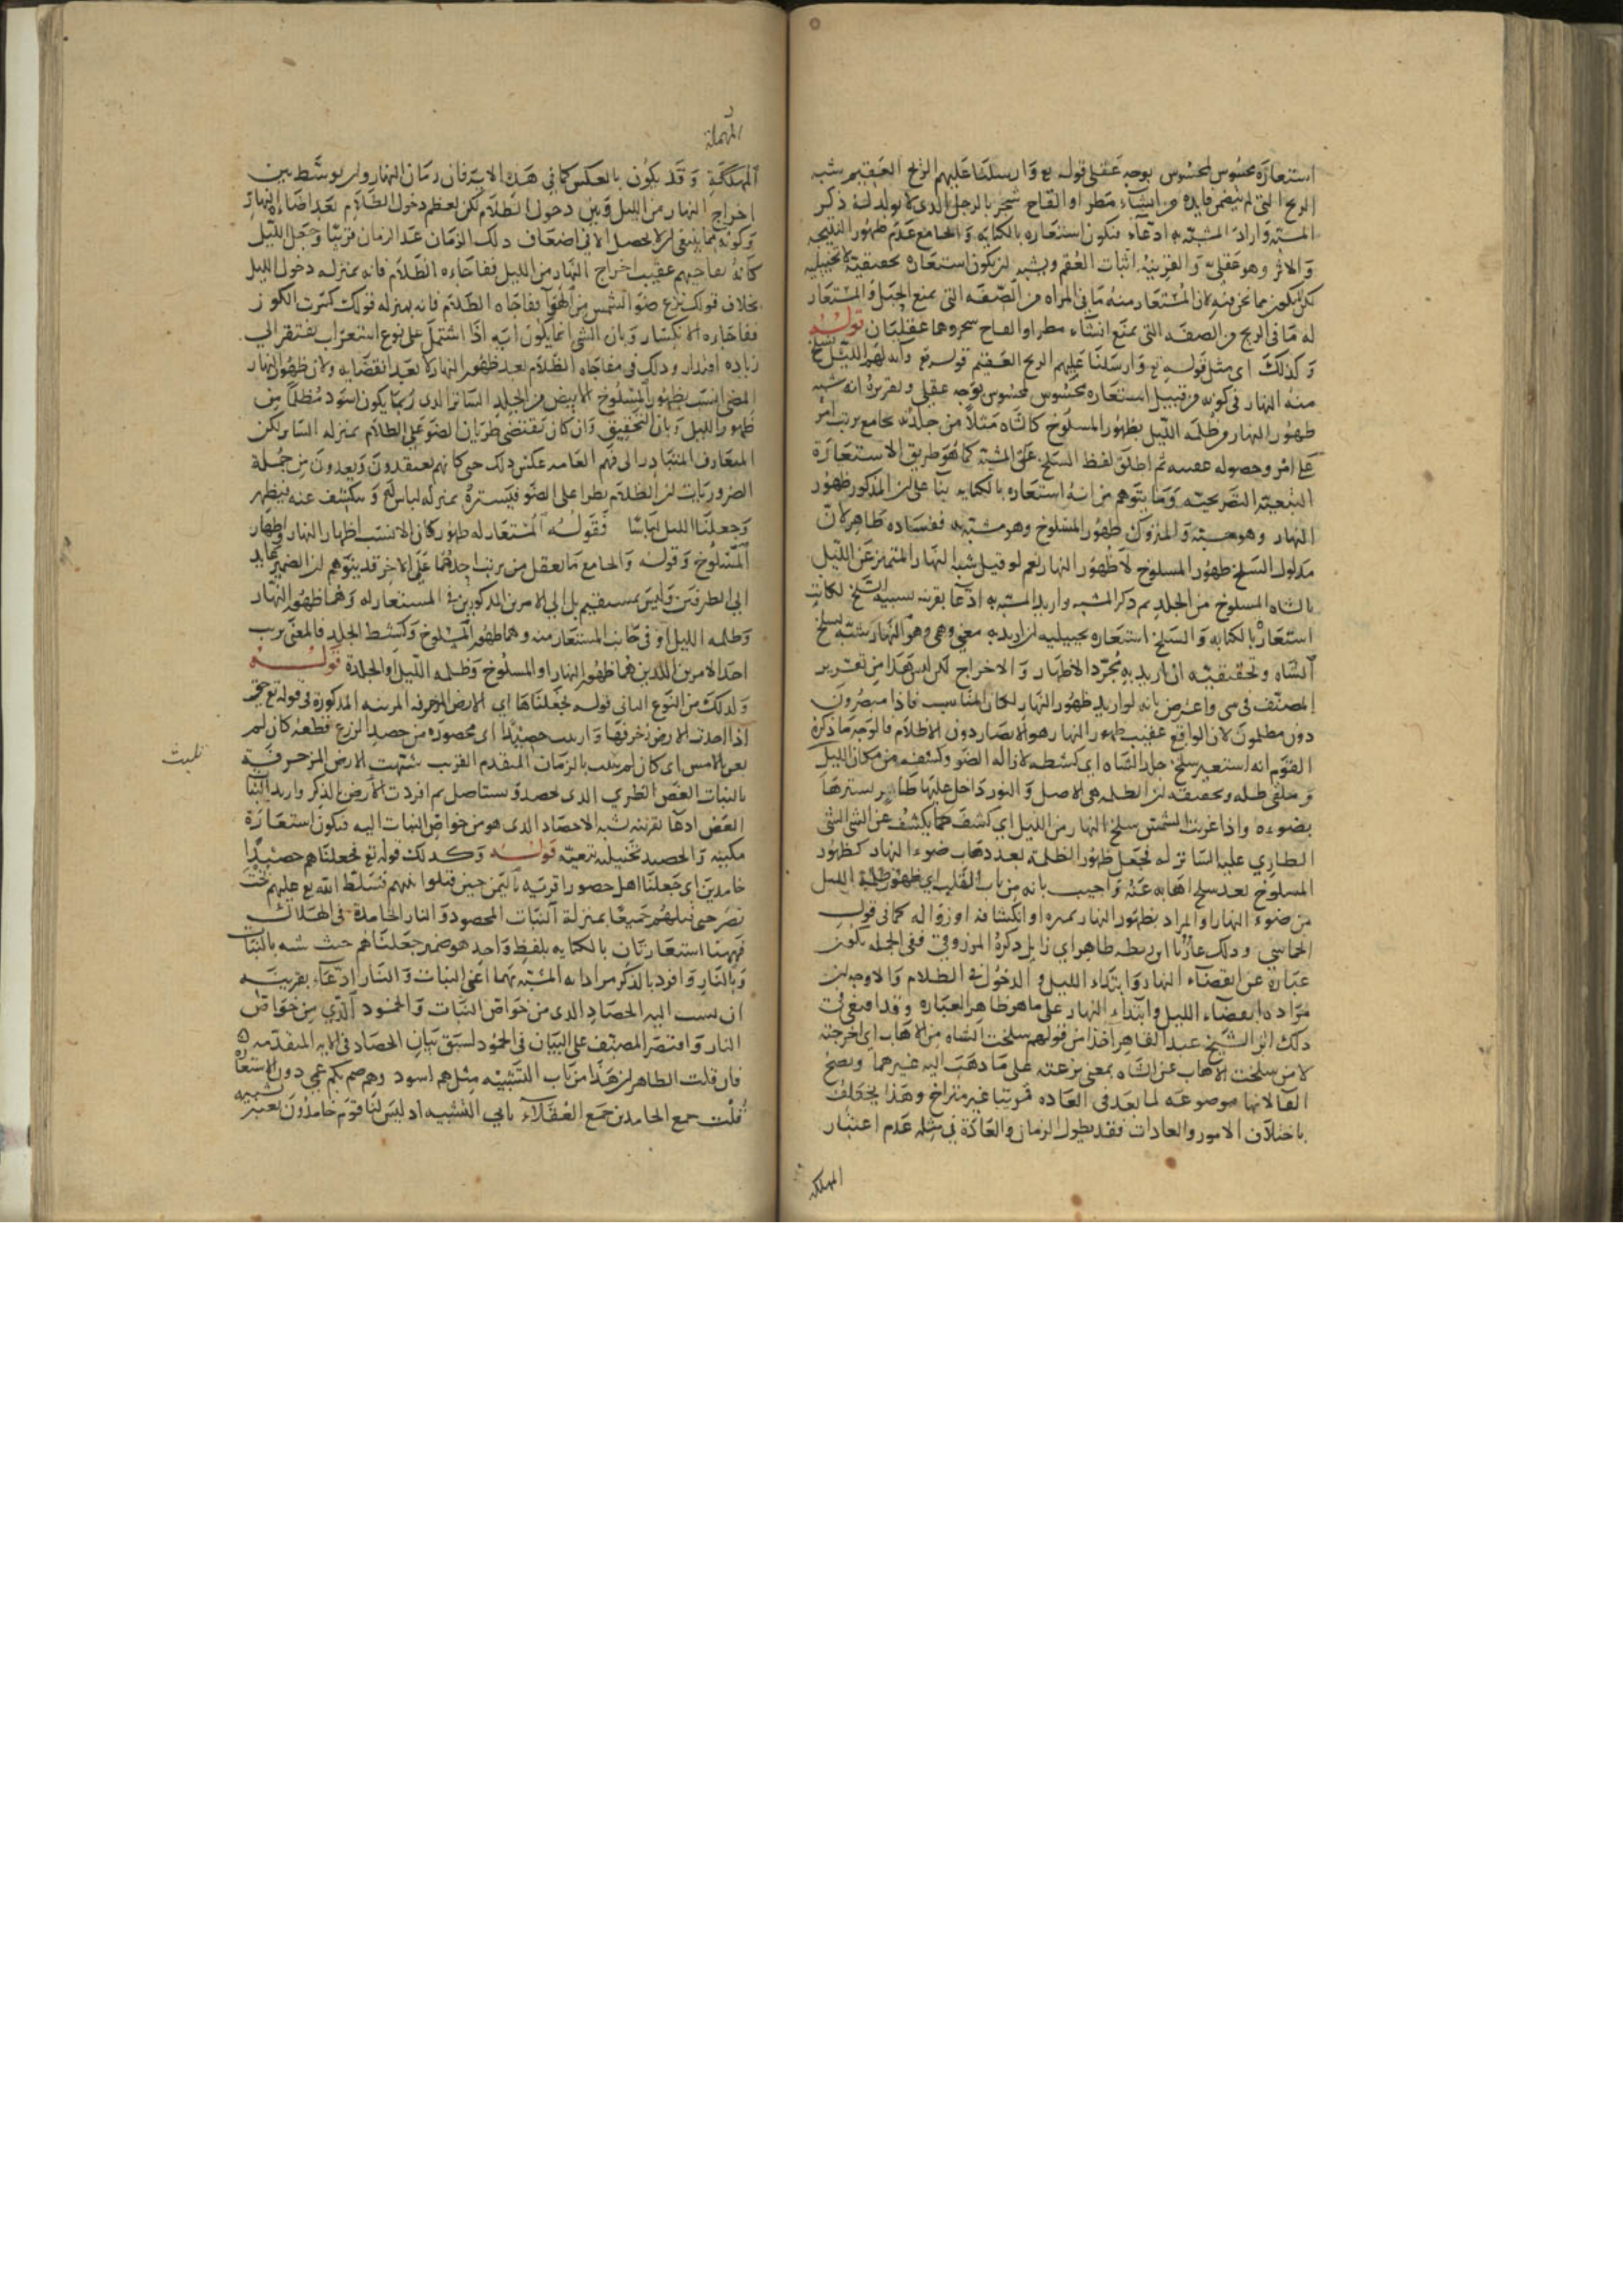 استعارة محسوس لمحسوس بوجه عقلي قوله تع وارسلنا عليهم الريح العقيم شبه
الريح التي لم يتضمن فايدة من انشاء مطر او القاح شجر بالرجل الذي لا يولد له ذكر
المشبه واراد المشبه به ادعاء فيكون استعاره بالكنايه والجامع عدم ظهور النتيجه
والاثر وهو عقلي والقرينه اثبات العقم ويشبه ان يكون استعارة تحقيقية لا تخييليه
لان المستعار منه ما في المراه من الصفه التي يمنع الحبل والمستعار
له ما في الريح من الصفه التي يمنع انشاء مطر او القاح شجر وهما عقليان قوله
وكذلك اي مثل قوله تع وارسلنا عليهم الريح العقيم قوله تع وآية لهم الليل نسلخ
منه النهار في كونه من قبيل استعاره محسوس لمحسوس بوجه عقلي وتقريره انه شبه
ظهور النهار من ظلمه الليل بظهور المسلوخ كالشاه مثلا من جلدته بجامع ترتب امر
على امر وحصوله عقيبه ثم اطلق لفظ السلخ على المشبه كما هو طريق الاستعارة
التبعية التصريحية وما يتوهم من انه استعاره بالكنايه بنا على ان المذكور ظهور
النهار وهو مشبه والمتروك ظهور المسلوخ وهو مشبه به ففساده ظاهر لان
مدلول السلخ ظهور المسلوخ لا ظهور النهار نعم لو قيل شبه النهار المتميز عن الليل
بالشاه المسلوخ من الجلد ثم ذكر المشبه واريد المشبه به ادعا بقرينه نسبة السلخ لكانت
استعارة بالكنايه والسلخ استعاره تخييليه ان اريد به معنى وهمي وهو للنهار يشبه سلخ
الشاه وتحقيقية ان اريد به مجرد الاظهار والاخراج لكن ليس هذا من تقرير
المصنف في شي واعترض بانه لو اريد ظهور النهار لكان المناسب فاذا هم مبصرون
دون مظلمون لان الواقع عقيب ظهور النهار هو الابصار دون الاظلام فالوجه ما ذكره
القوم انه استعير سلخ جلد الشاه اي كشطه لازالة الضوء وكشفه من مكان الليل
وملقى ظله وتحقيقه ان الظلمه هي الاصل والنور داخل عليها طار يسترها
بضوءه واذا غربت الشمس سلخ النهار من الليل اي كشف كما يكشف عن الشي الشي
الطاري عليه الساتر له فجعل ظهور الظلمه بعد ذهاب ضوء النهار كظهور
المسلوخ بعد سلخ اهابه عنه واجيب بانه من باب القلب اي ظهور ظلمة الليل
من ضوء النهار او المراد بظهور النهار تميزه او انكشافه او زواله كما في قول
الحماسي وذلك عار يا ابن ريطه ظاهر اي زايل ذكره المرزوقي ففي الجمله يكون
عبارة عن انقضاء النهار وابتداء الليل والدخول في الظلام والاوجه ان
مراده انقضاء الليل وابتداء النهار على ما هو ظاهر العبارة وقد اقتفى في
ذلك اثر الشيخ عبد القاهر اخذا من قولهم سلخت الشاه من الاهاب اي اخرجته
لا من سلخت الاهاب عن الشاه بمعنى نزعته على ما ذهب اليه غيرهما ويصح
الفا لانها موضوعه لما يعد في العاده مرتبا غير متراخ وهذا يختلف
باختلاف الامور والعادات فقد يطول الزمان والعادة في مثله عدم اعتبار
المهلة
المهملة
المهلة وقد يكون بالعكس كما في هذه الاية فان زمان النهار وان توسط بين
اخراج النهار من الليل وبين دخول الظلام لكن لعظم دخول الظلام بعد اضاءة النهار
وكونه مما ينبغي ان لا يحصل الا في اضعاف ذلك الزمان عد الزمان قريبا وجعل الليل
كانه يفاجيهم عقيب اخراج النهار من الليل ففاجاءه الظلام فانه بمنزله دخول الليل
بخلاف قولك نزع ضوء الشمس من الهوا ففاجاه الظلام فانه بمنزله قولك كسرت الكوز
ففاجاه الانكسار وبان الشي انما يكون آية اذا اشتمل على نوع استغراب يفتقر الى
زياده اقتدار وذلك في مفاجاه الظلام بعد ظهور النهار لا بعد انقضايه ولان ظهور النهار
المضي انسب بظهور المسلوخ الابيض من الجلد الساتر الذي ربما يكون اسود مظلما من
ظهور الليل وبان التحقيق وان كان يقتضي طريان الضوء على الظلام بمنزله الساتر لكن
المتعارف المتبادر الى فهم العامه عكس ذلك حتى كانهم يعتقدون ويعدون من جملة
الضروريات ان الظلام يطرا على الضو فيستره بمنزله لباس له وينكشف عنه فيظهر
وجعلنا الليل لباسا فقوله المستعار له ظهور كان الانسب اظهار النهار واظهار
المسلوخ وقوله والجامع ما يعقل من ترتب احدهما على الاخر قد يتوهم ان الضمير عايد
الى الطرفين وليس بمستقيم بل الى الامرين المذكورين في المستعار له وهما ظهور النهار
وظلمه الليل او في جانب المستعار منه وهما ظهور المسلوخ وكشط الجلد فالمعنى ترتب
احد الامرين اللذين هما ظهور النهار او المسلوخ وظلمه الليل او الجلدة قوله
وكذلك من النوع الثاني قوله فجعلناها اي الارض المزخرفه المزينه المذكورة في قوله تع حتى
اذا اخذت الارض زخرفها وازينت حصيدا اي محصوده من حصد الزرع قطعه كان لم
تغن بالامس اي كان لم تلبث بالزمان المتقدم القريب شبهت الارض المزخرفة
بالنبات الغض الطري الذي حصد ويستاصل ثم افردت الارض بالذكر واريد النبات
الغض ادعا بقرينه نسبه الاحصاد الذي هو من خواص النبات اليه فيكون استعارة
مكنيه والحصيد تخييليه تبعية قوله وكذلك قوله تع فجعلناهم حصيدا
خامدين اي جعلنا اهل حصورا قرية باليمن حين قتلوا نبيهم فسلط الله تع عليهم بخت
نصر حتى قتلهم جميعا بمنزلة النبات المحصود والنار الخامدة في الهلاك
فههنا استعارتان بالكنايه بلفظ واحد هو ضمير جعلناهم حيث شبه بالنبات
وبالنار وافرد بالذكر مرادا به المشبه بهما اعني النبات والنار ادعاء بقرينة
ان نسب اليه الحصاد الذي من خواص النبات والخمود الذي من خواص
النار واقتصر المصنف على البيان في الخمود لسبق بيان الحصاد في الايه المتقدمه
فان قلت الظاهر ان هذا من باب التشبيه مثل هم اسود وهم صم بكم عمي دون الاستعارة
قلت جمع الخامدين جمع العقلاء يابي التشبيه اذ ليس لنا قوم خامدون يعتبر تشبيه